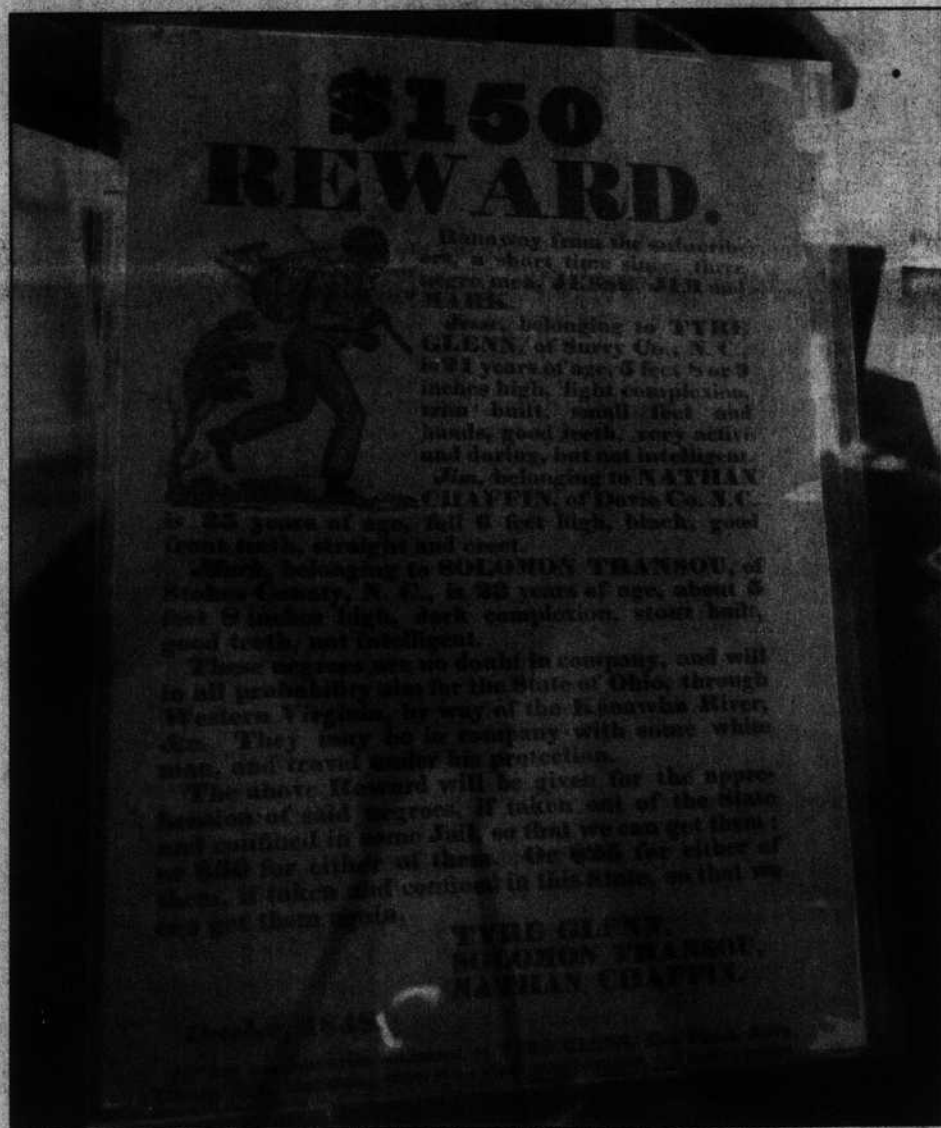 $150
REWARD.
Ranaway from the subscrib-
ers, a short time since, three
negro men, JESSE, JIM and
MARK.
Jesse, belonging to TYRE
GLENN, of Surry Co., N. C.,
is 21 years of age, 5 feet 8 or 9
inches high, light complexion,
trim built, small feet and
hands, good teeth, very active
and daring, but not intelligent.
Jim, belonging to NATHAN
CHAFFIN, of Davie Co. N.C.
is 25 years of age, full 6 feet high, black, good
front teeth, straight and erect.
Mark, belonging to SOLOMON TRANSOU, of
Stokes County, N. C., is years of age, about 5
feet 8 inches high, dark complexion, stout built,
good teeth, not intelligent.
These negroes are no doubt in company, and will
in all probability aim for the State of Ohio, through
Western Virginia, by way of the Kanawha River,
&c. They may be in company with some white
man, and travel under his protection.
The above Reward will be given for the appre-
hension of said negroes, if taken out of the State
and confined in some Jail, so that we can get them;
or $50 for either of them. Or $25 for either of
them, if taken and confined in this State, so that we
can get them again.
TYRE GLENN,
SOLOMON TRANSOU,
NATHAN CHAFFIN.
TYRE GLENN,